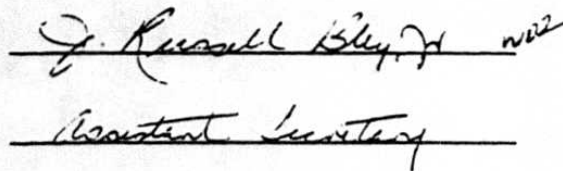 J. Russell Bley, Jr
Assistant Secretary